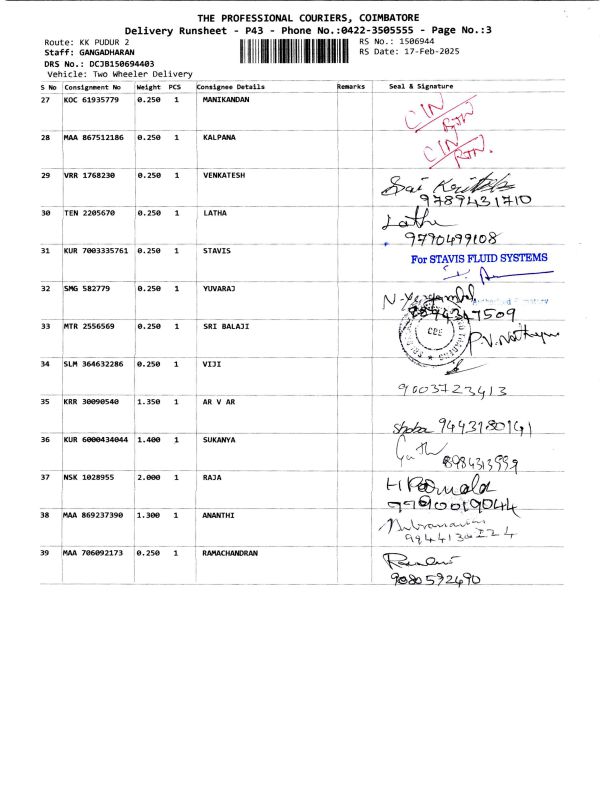 THE PROFESSIONAL COURIERS, COIMBATORE
Delivery Runsheet - P43 - Phone No.:0422-3505555 - Page No.:3
Route: KK PUDUR 2 RS No.: 1506944
Staff: GANGADHARAN RS Date: 17-Feb-2025
DRS No.: DCJB150694403
Vehicle: Two Wheeler Delivery
S No Consignment No Weight PCS Consignee Details Remarks Seal & Signature
27 KOC 61935779 0.250 1 MANIKANDAN CIN
RTN
28 MAA 867512186 0.250 1 KALPANA CIN
RTN.
29 VRR 1768230 0.250 1 VENKATESH Sai
9789431710
30 TEN 2205670 0.250 1 LATHA Latha
9790499108
31 KUR 7003335761 0.250 1 STAVIS For STAVIS FLUID SYSTEMS
32 SMG 582779 0.250 1 YUVARAJ
33 MTR 2556569 0.250 1 SRI BALAJI CBE
34 SLM 364632286 0.250 1 VIJI
9003723413
35 KRR 30090540 1.350 1 AR V AR
36 KUR 6000434044 1.400 1 SUKANYA
37 NSK 1028955 2.000 1 RAJA
38 MAA 869237390 1.300 1 ANANTHI
39 MAA 706092173 0.250 1 RAMACHANDRAN
9080592490